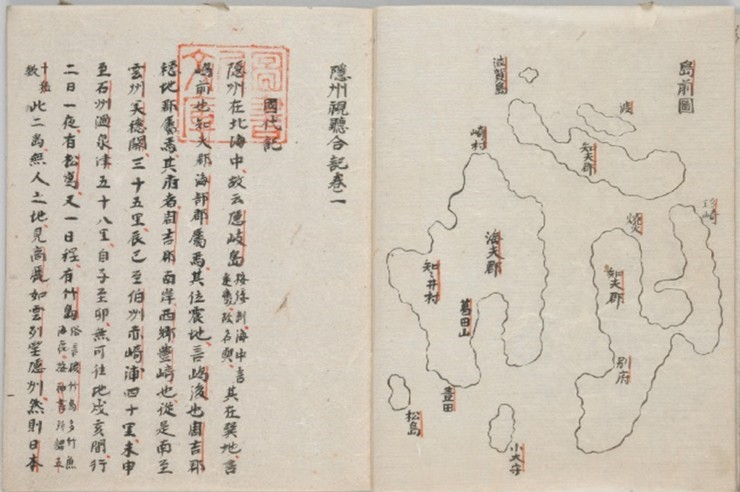 島前圖
波賀島
渡
知夫郡
崎村
珍崎
燒火
海夫郡
知夫郡
知々井村
葛田山
別府
豊田
松島
隱州視聽合記巻一
國代記
隱州在北海中故云隱岐島按倭訓海中言遠幾故名歟其在巽地言
嶋前也知夫郡海部郡屬焉其位震地言嶋後也周吉郡
穩地郡屬焉其府者周吉郡南岸西郷豊崎也從是南至
雲州美穗關三十五里辰巳至伯州赤碕浦四十里未申
至石州温泉津五十八里自子至卯無可往地戌亥間行
二日一夜有松島又一日程有竹島俗言磯竹島多竹魚海鹿按神書所謂五
十猛歟此二島無人之地見高麗如雲州望隱州然則日本